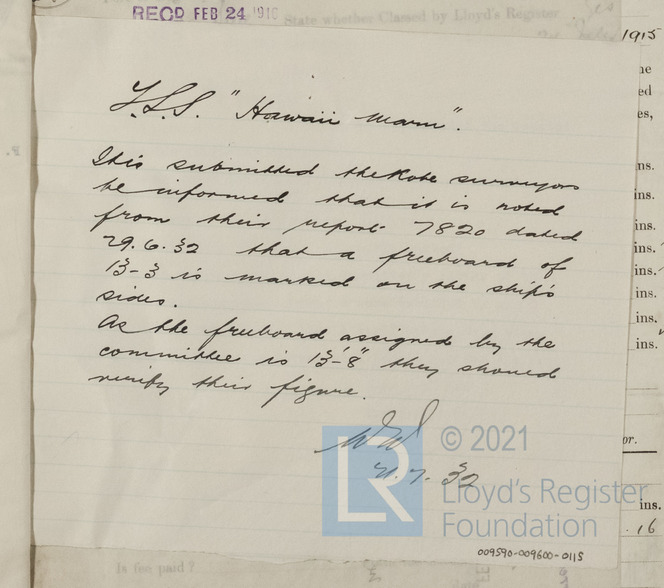 RECD FEB 24 191
State whether Classed by Lloyd's Register
1915
T.S.S. "Hawaii Maru".
It is submitted the Kobe surveyors
be informed that it is noted
from their report 7820 dated
29.6.32 that a freeboard of
13-3 is marked on the ship's
sides.
As the freeboard assigned by the
committee is 13'-8" they should
verify their figure.
7.32
ne
ed
es,
ns.
ins.
ins.
ins.
ins.
ins.
ins.
or.
ins.
16
LR
© 2021
Lloyd's Register
Foundation
009590-009600-0115
Is fee paid?